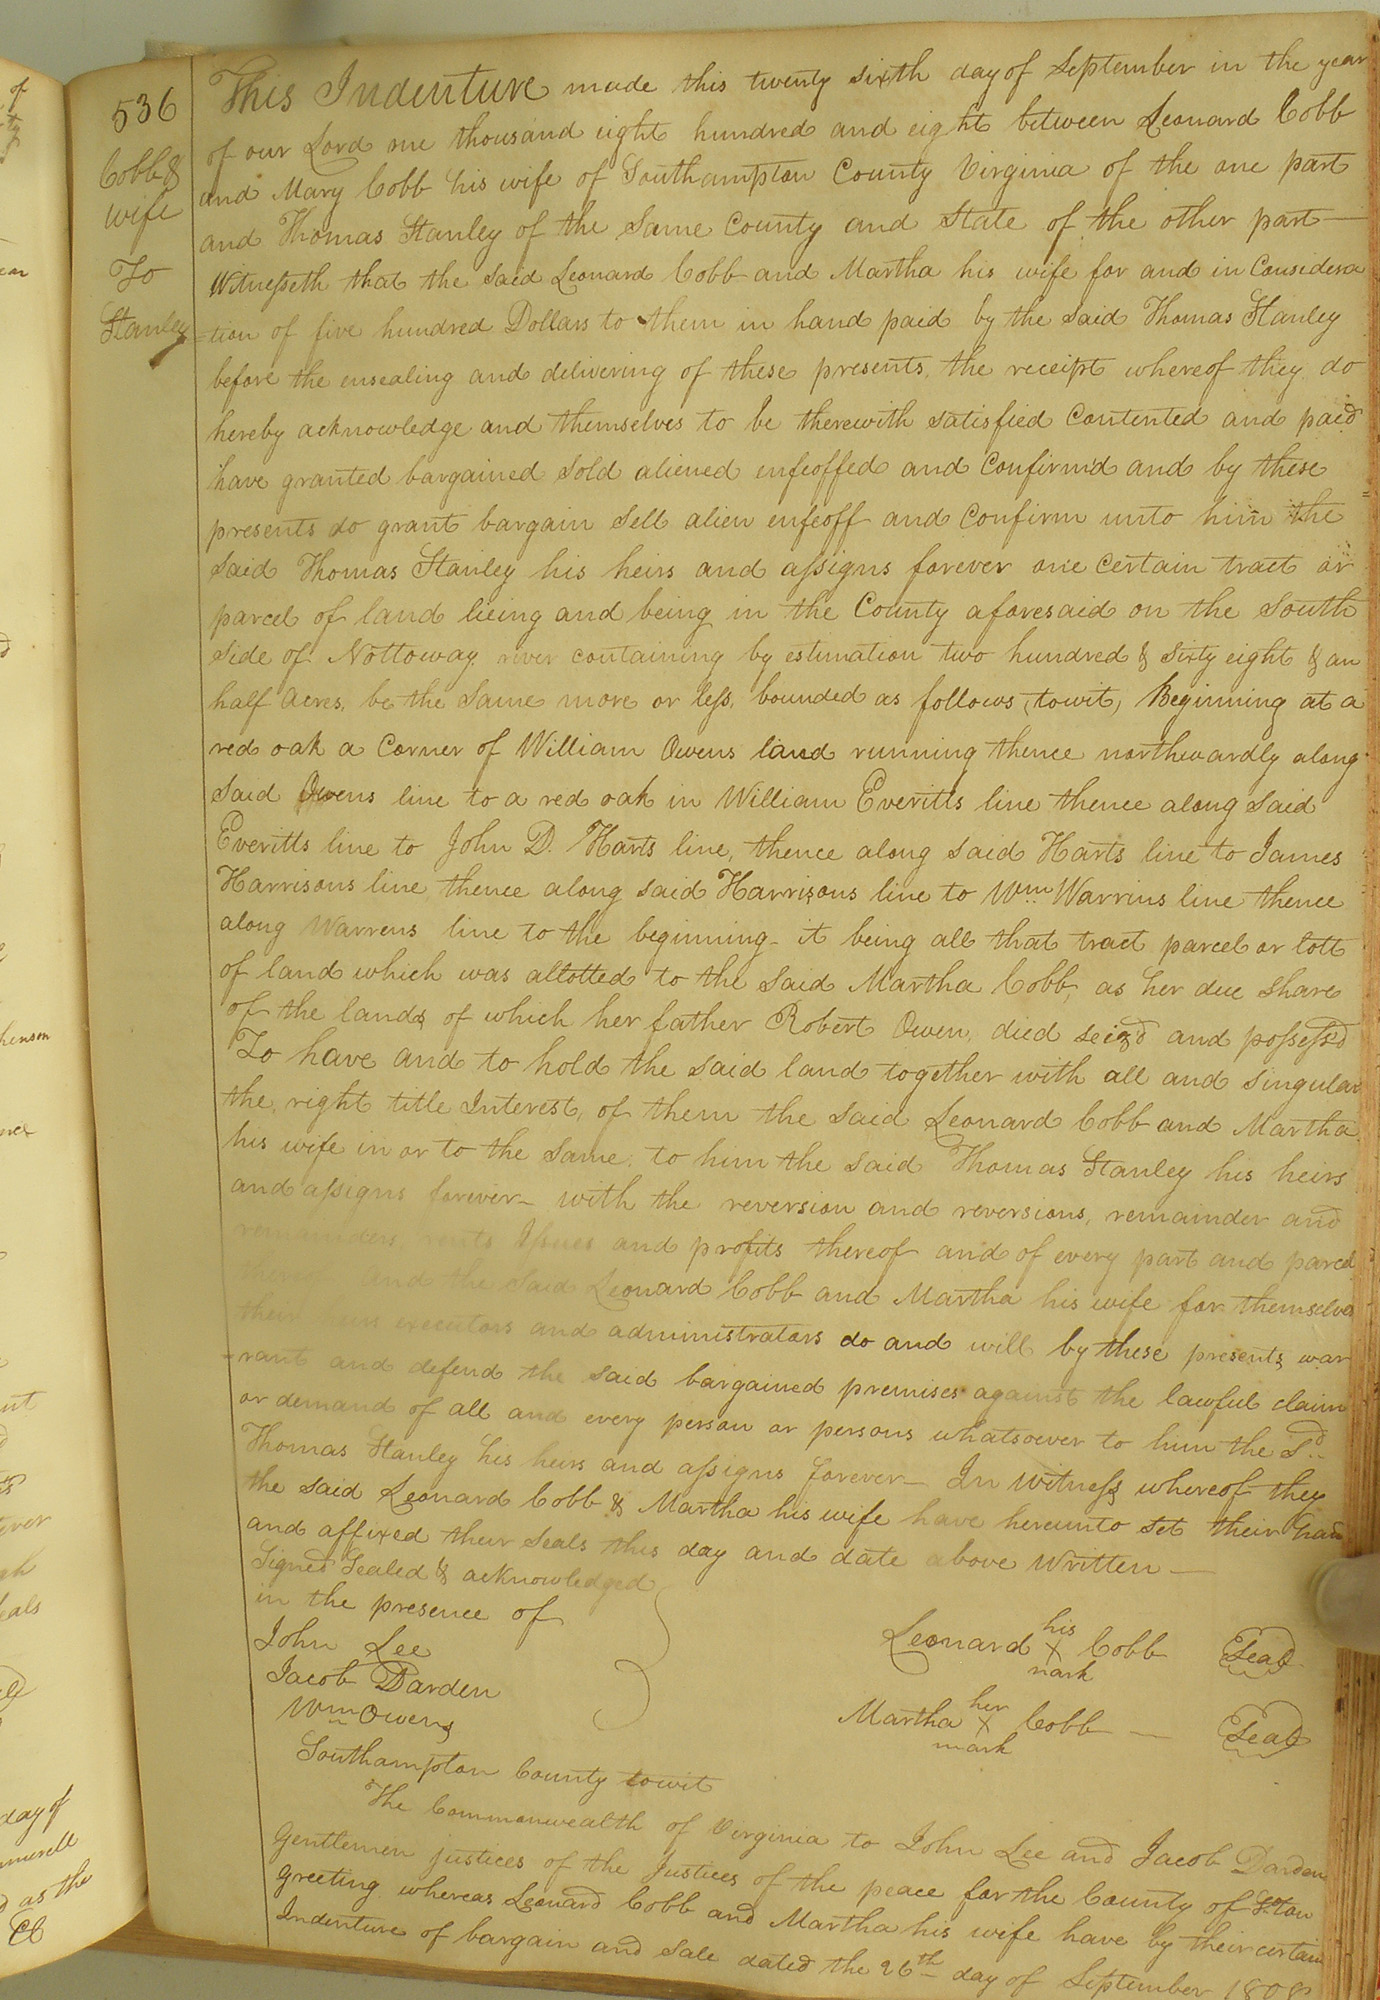 536
Cobb &
wife
To
Stanley
This Indenture made this twenty sixth day of September in the year
of our Lord one thousand eight hundred and eight between Leonard Cobb
and Mary Cobb his wife of Southampton County Virginia of the one part
and Thomas Stanley of the Same County and State of the other part —
Witnesseth that the said Leonard Cobb and Martha his wife for and in Considera
=tion of five hundred Dollars to them in hand paid by the said Thomas Stanley
before the ensealing and delivering of these presents, the receipt whereof they do
hereby acknowledge and themselves to be therewith satisfied Contented and paid
have granted bargained Sold aliened enfeoffed and Confirm'd and by these
presents do grant bargain Sell alien enfeoff and Confirm unto him the
said Thomas Stanley his heirs and assigns forever one Certain tract or
parcel of land lieing and being in the County aforesaid on the South
Side of Nottoway river containing by estimation two hundred & sixty eight & an
half Acres, be the Same more or less, bounded as follows, towit, Beginning at a
red oak a Corner of William Owens land running thence northwardly along
Said Owens line to a red oak in William Everitts line thence along said
Everitts line to John D. Harts line, thence along said Harts line to James
Harrisons line, thence along said Harrisons line to Wm Warrins line thence
along Warrens line to the beginning - it being all that tract parcel or lott
of land which was allotted to the said Martha Cobb, as her due share
of the lands of which her father Robert Owen, died seiz'd and possess'd
To have and to hold the said land together with all and singular
the right title Interest, of them the said Leonard Cobb and Martha
his wife in or to the Same, to him the said Thomas Stanley his heirs
and assigns forever — with the reversion and reversions, remainder and
remainders rents Issues and profits thereof and of every part and parcel
and the said Leonard Cobb and Martha his wife for themselves
their heirs executors and administrators do and will by these presents war
-rant and defend the said bargained premises against the lawful claim
or demand of all and every person or persons whatsoever to him the Sd
Thomas Stanley his heirs and assigns forever — In Witness whereof they
the said Leonard Cobb & Martha his wife have hereunto set their hand
and affixed their seals this day and date above Written —
Signed Sealed & acknowledged
in the presence of
John Lee
Jacob Darden
Wm Owens
Leonard his X mark Cobb Seal
Martha her X mark Cobb — Seal
Southampton County towit
The Commonwealth of Virginia to John Lee and Jacob Darden
Gentlemen justices of the Justices of the peace for the County of Ston
Greeting whereas Leonard Cobb and Martha his wife have by their certain
Indenture of bargain and Sale dated the 26th day of September 1808